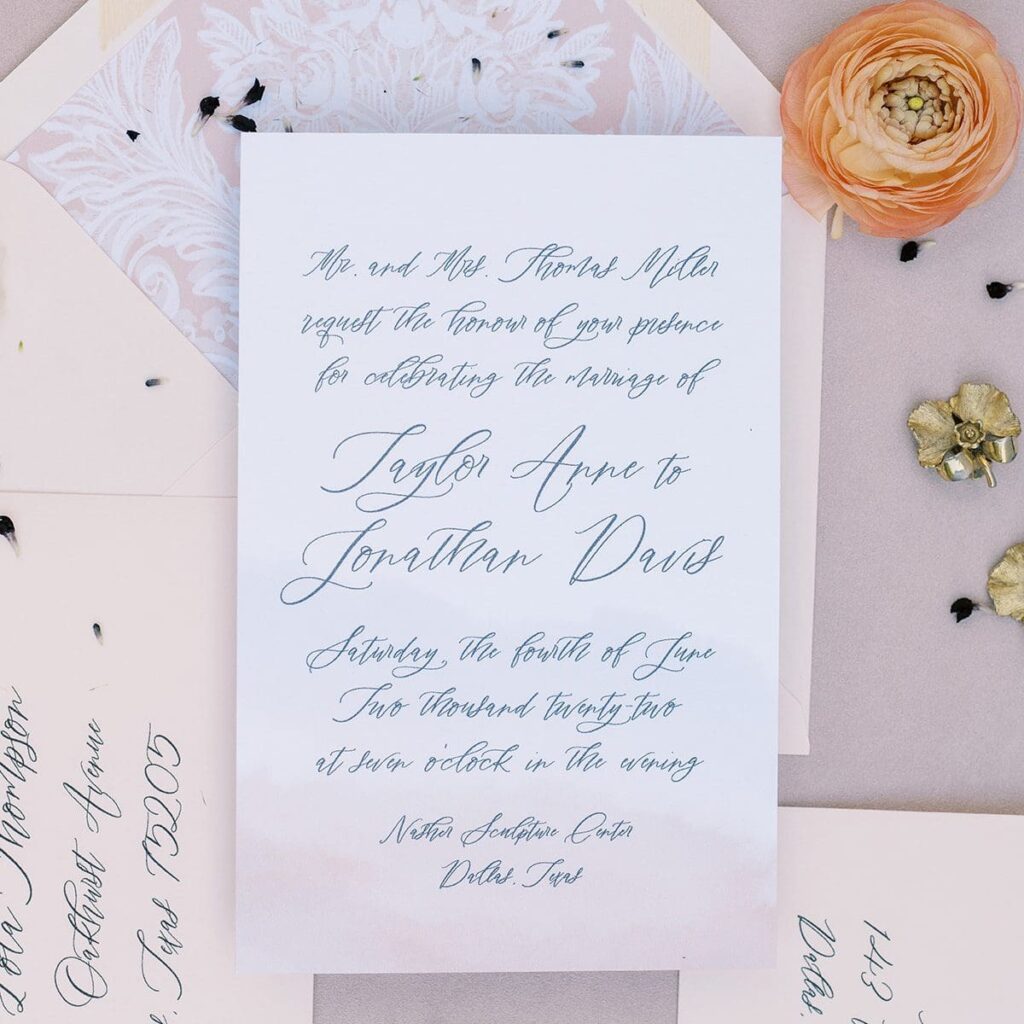 Mr. and Mrs. Thomas Miller
request the honour of your presence
for celebrating the marriage of
Taylor Anne to
Jonathan Davis
Saturday, the fourth of June
Two thousand twenty-two
at seven o'clock in the evening
Nasher Sculpture Center
Dallas, Texas
Lola Thompson
Oakhurst Avenue
Texas 75205
143
Dallas,